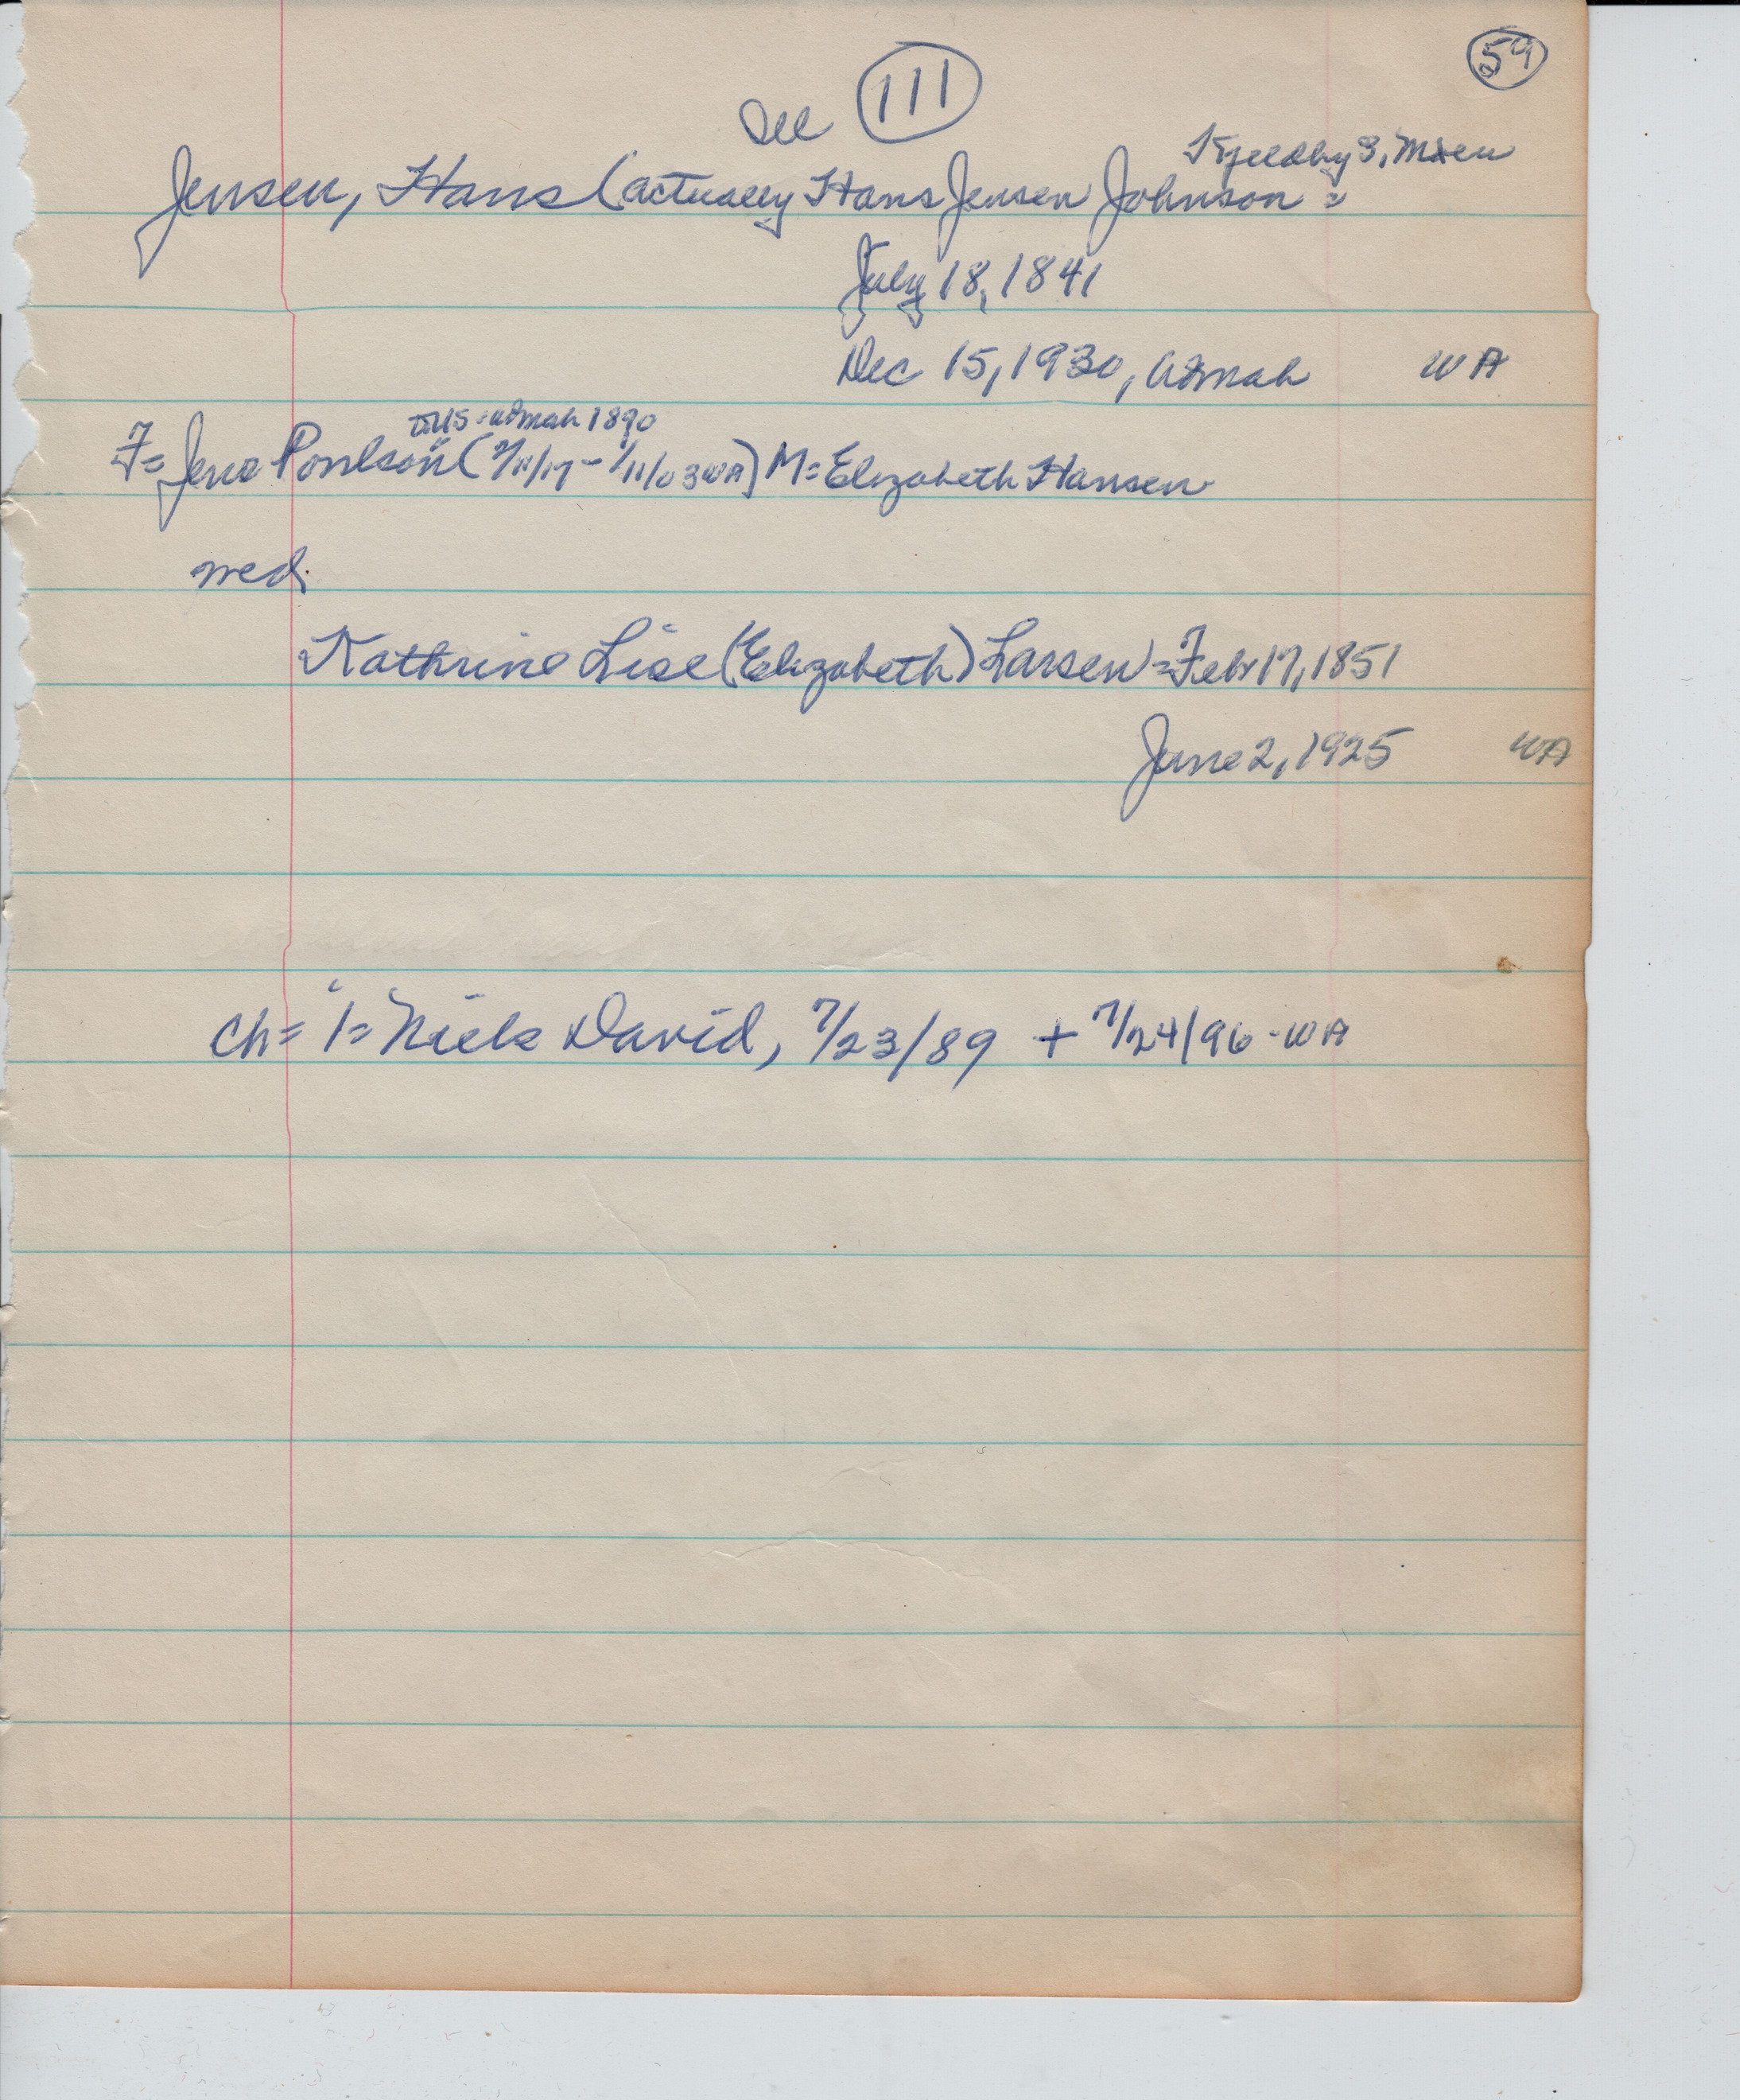 59
See 111
Kjeldby S, Møen
Jensen, Hans (actually Hans Jensen Johnson =
July 18, 1841
Dec 15, 1930, Admah WA
to US - Admah 1890
F = Jens Poulson ( /11/17 - 1/11/03 WA) M = Elizabeth Hansen
med.
Kathrine Lise (Elizabeth) Larsen = Feb 17, 1851
June 2, 1925 WA
Ch = 1 = Niels David, 7/23/89 + 7/24/96 - WA